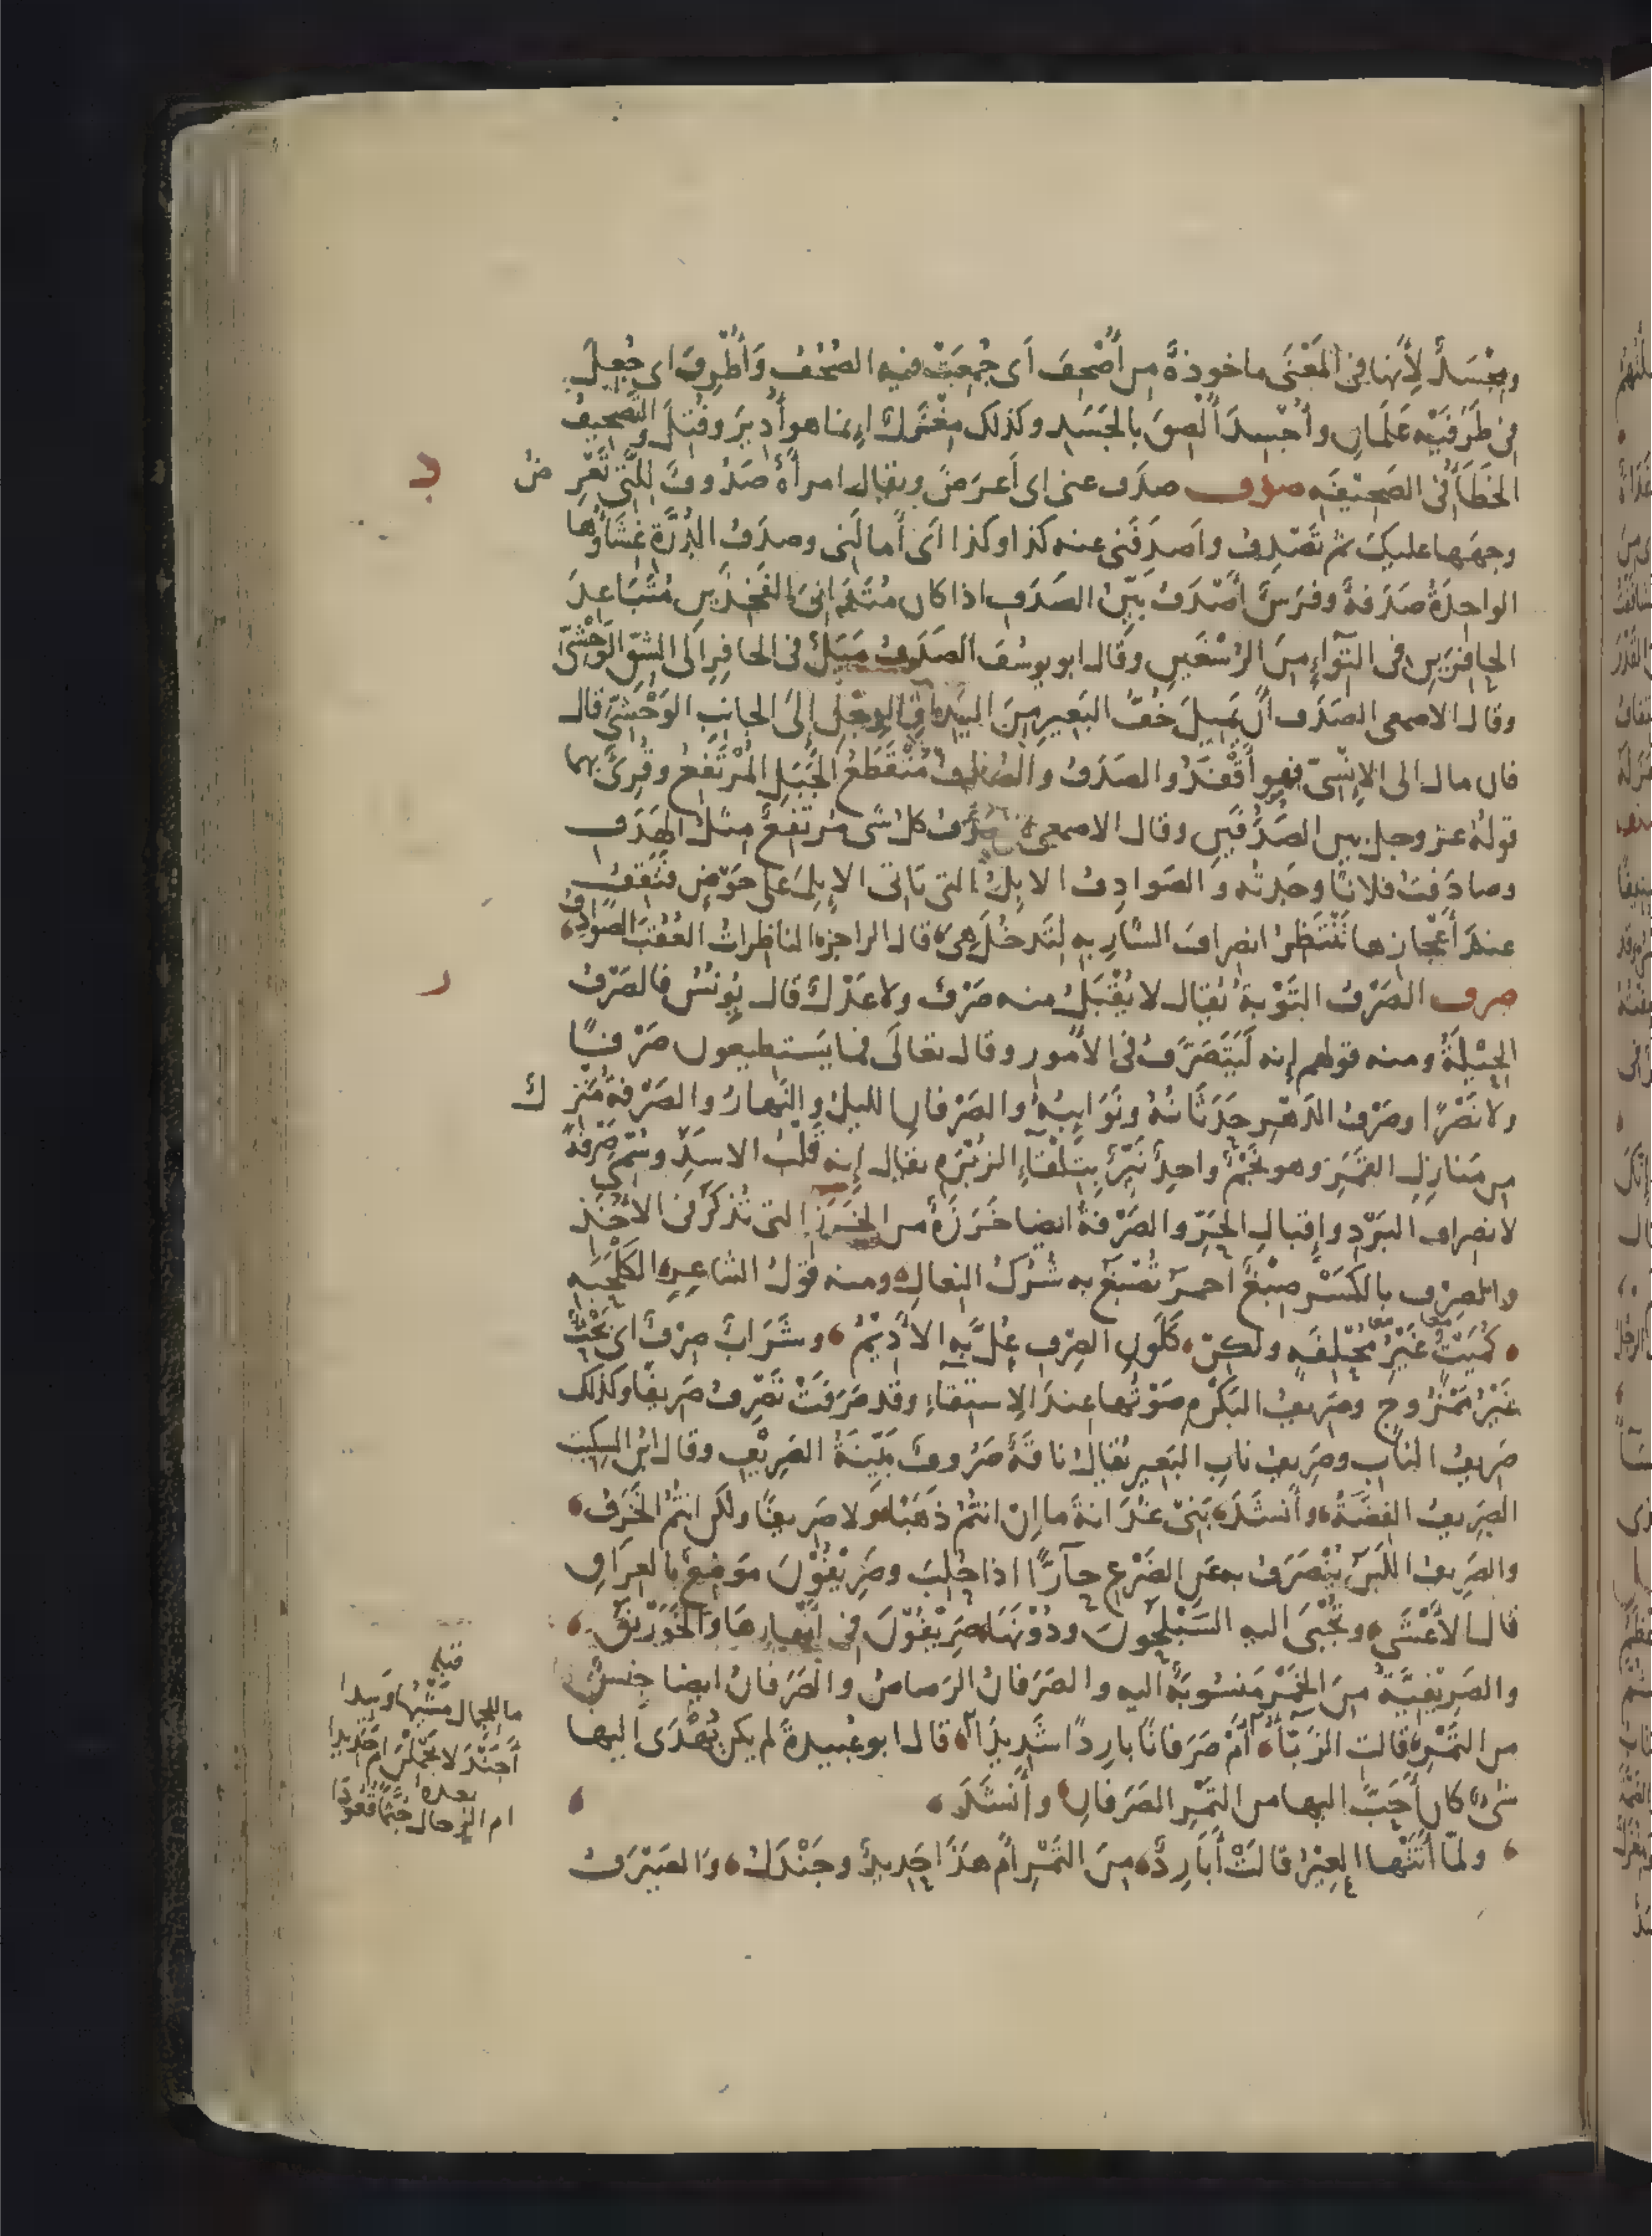 ومجسد لأنها في المعنى ماخوذة من أُصْحِفَ أى جُمِعَتْ فيه الصُحُفُ وَأُطْرِفَ اى جُعِلَ
في طَرَفَيْه عَلَمَانِ وأُجْسِدَ أُلْصِقَ بالجَسَدِ وكذلك مِغْزَل إنما هو أُدِيرَ وفُتِلَ والتَّصْحِيفُ
الخَطَأُ في الصَحِيْفَه صدف صدَف عنى اى أعرَضَ ويقال امرأة صَدُوفٌ لِلَّتى تَعْرِضُ
وجهها عليك ثم تَصْدِفُ واَصدَفَنى عنه كذا وكذا اى أَمالَنى وصدَفُ الدُرَّة غِشَاؤُها
الواحِدَةُ صَدَفةٌ وفرَسٌ أَصْدَفُ بَيّنُ الصَدَفِ اذا كان مُتَدَانىَ الفَخِذَيْنِ مُتَبَاعِدَ
الحافِرَيْنِ فى التِوَاءٍ مِنَ الرُسْغَيْنِ وقال ابو يوسُفَ الصَدَفُ مَيَلٌ فى الحافِرِ الى الشقِّ الوَحْشىّ
وقال الاصمعى الصَدَف أن يَميلَ خُفُّ البَعيرِ مِنَ اليَدِ او الرِجْلِ إلى الجانِبِ الوَحْشىِّ قال
فان مال الى الإنسِىّ فهو أَقْفَدُ والصدَفُ والصُدُفُ مُنْقَطَعُ الجَبَلِ المُرْتَفِعُ وقُرِئَ بهما
قولُهُ عز وجل بين الصُدُفَيْنِ وقال الاصمعى صُدَفُ كل شىءٍ مُرْتَفِعٍ مثلُ الهَدَفِ
وصادَفتُ فلانًا وجدتُه والصَوادِفُ الابِلُ التى تأتى الإبِلَ على حَوْضٍ فَتَقِفُ
عندَ أَعْجازِها تَنْتَظِرُ انصِرافَ الشارِبه لِتَدخُلَ هىَ قال الراجز الناظِراتُ العُقَبَ الصَوادِفُ
صرف الصَرْفُ التَوْبةُ يُقال لا يُقْبَلُ منه صَرْفٌ ولا عَدْلٌ قال يُونُسُ فالصَرْفُ
الحِيْلَةُ ومنه قولهم إنه لَيَتَصَرَّفُ في الأُمورِ وقال تعالَى فما يَستطيعون صَرْفًا
ولا نَصْرًا وصَرْفُ الدَهْرِ حَدَثَانُهُ ونَوَائِبُهُ والصَرْفانِ الليلُ والنَهارُ والصَرْفةُ مَنْزِلٌ
من مَنازِلِ القَمَرِ وهو نَجْمٌ واحِدٌ نَيِّرٌ يَتَلْقَاءِ الزُبْرَه يقال إنه قَلْبُ الاسَدِ وسُمّى صَرْفةً
لانصِرافِ البَرْدِ وإقبالِ الحَرِّ والصَرْفةُ ايضا خَرَزَةٌ من الخَرَزِ التى تُذْكَرُ فى الأُخَذِ
والصِرْف بالكَسْرِ صِبْغٌ احمرُ تُصْبَغُ به شُرُكُ النِعالِ ومنه قَوْلُ الشاعِرِ الكَلْحَبه
كُمَيْتٌ غَيْرُ مُحْلِفَهٍ ولكِنْ كَلَوْنِ الصِرْفِ عُلَّ بِهِ الأَدِيْمُ وشَرَابٌ صِرْفٌ اى بَحْتٌ
غَيْرُ مَمْزُوجٍ وصَرِيفُ البَكْرَهِ صَوْتُها عندَ الاستِقاءِ وقد صَرَفَتْ تَصْرِفُ صَرِيفًا وكذلك
صَرِيفُ البابِ وصَرِيفُ نابِ البَعِيرِ يُقالُ ناقَةٌ صَرُوفٌ بَيّنَةُ الصَرِيْفِ وقال ابن السِكِيت
الصَرِيفُ الفِضَّةُ وأَنشَدَ بَنى غُدَانةَ ما إنْ انتُمُ ذَهَبًا ولا صَرِيفًا ولكن انتُمُ الخَزَفُ
والصَرِيفُ اللَبَنُ يُنْصَرَفُ به عَنِ الضَرْعِ حارًّا اذا حُلِبَ وصَرِيْفُوْنَ مَوْضِعٌ بالعِرَاقِ
قال الأَعْشَى وتُجْبَى اليه السَيْلَحُونَ ودُوْنَهَا صَرِيْفُوْنَ فى أنهارِها وَالخَوَرْنَقُ
والصَرِيْفِيَّةُ مِنَ الخَمْرِ مَنسُوبَةٌ اليه والصَرَفانُ الرَصاصُ والصَرَفانُ ايضا جِنسٌ
من التَمْرِ قالت الزَبّآءُ أَمْ صَرَفانًا بارِدًا شَدِيدَا قال ابو عُبيدةَ لم يكن يُهْدَى اليها
شىءٌ كان أَحَبَّ اليها من التَمْرِ الصَرَفانِ وأَنشَدَ
ولَمّا أَتَتْها العِيْرُ قالَتْ أَبَارِدٌ مِنَ التَمْرِ أَمْ هذَا حَدِيدٌ وجَنْدَلُ والصَيْرَفُ
د
ر
قبله
ما للجِمال مَشْيُها وَئِيدا
أَجَنْدَلًا يَحْمِلْنَ أم حَدِيدا
بعده
ام الرجال جُثَّمًا قُعُودَا